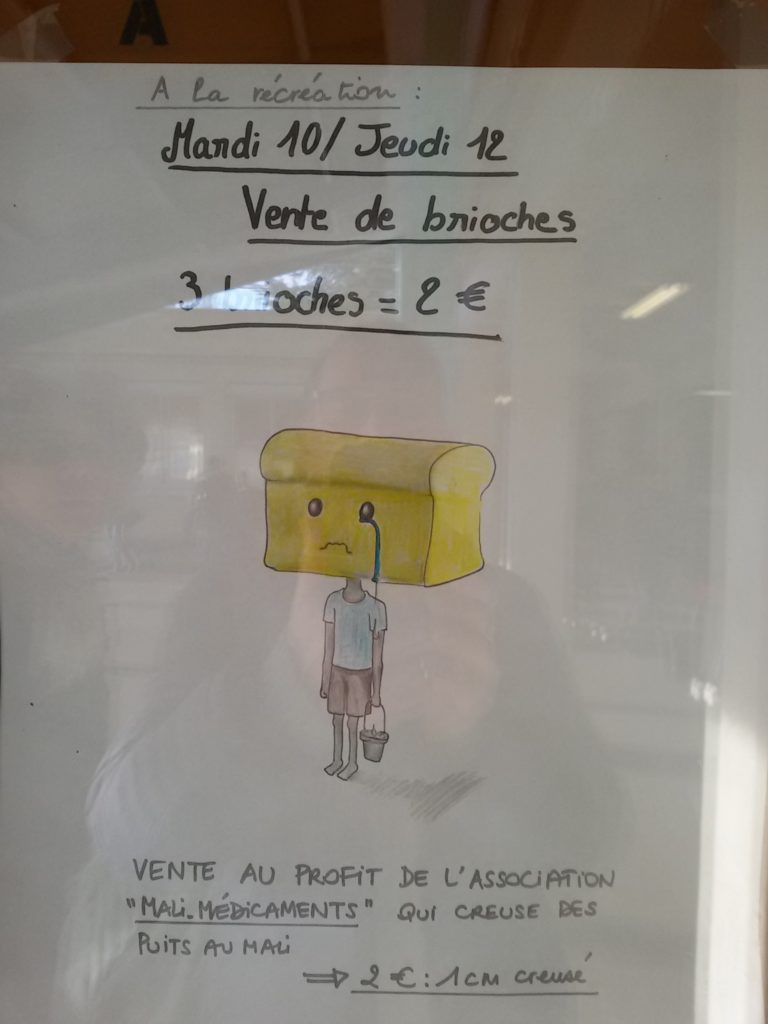 A
A la récréation :
Mardi 10/ Jeudi 12
Vente de brioches
3 brioches = 2 €
VENTE AU PROFIT DE L'ASSOCIATION
"MALI-MÉDICAMENTS" QUI CREUSE DES
PUITS AU MALI
⇒ 2 € : 1 CM creusé